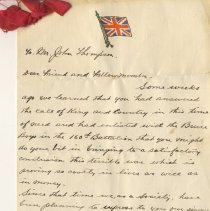 To Mr. John Thompson.
Dear Friend and Fellow member,
Some weeks
ago we learned that you had answered
the call of King and Country in this time
of need and had enlisted with the Bruce
Boys in the 160th Battalion that you might
do your bit in bringing to a satisfactory
conclusion this terrible war which is
proving so costly in lives as well as
in money.
Since that time we, as a society, have
been planning to express to you in some